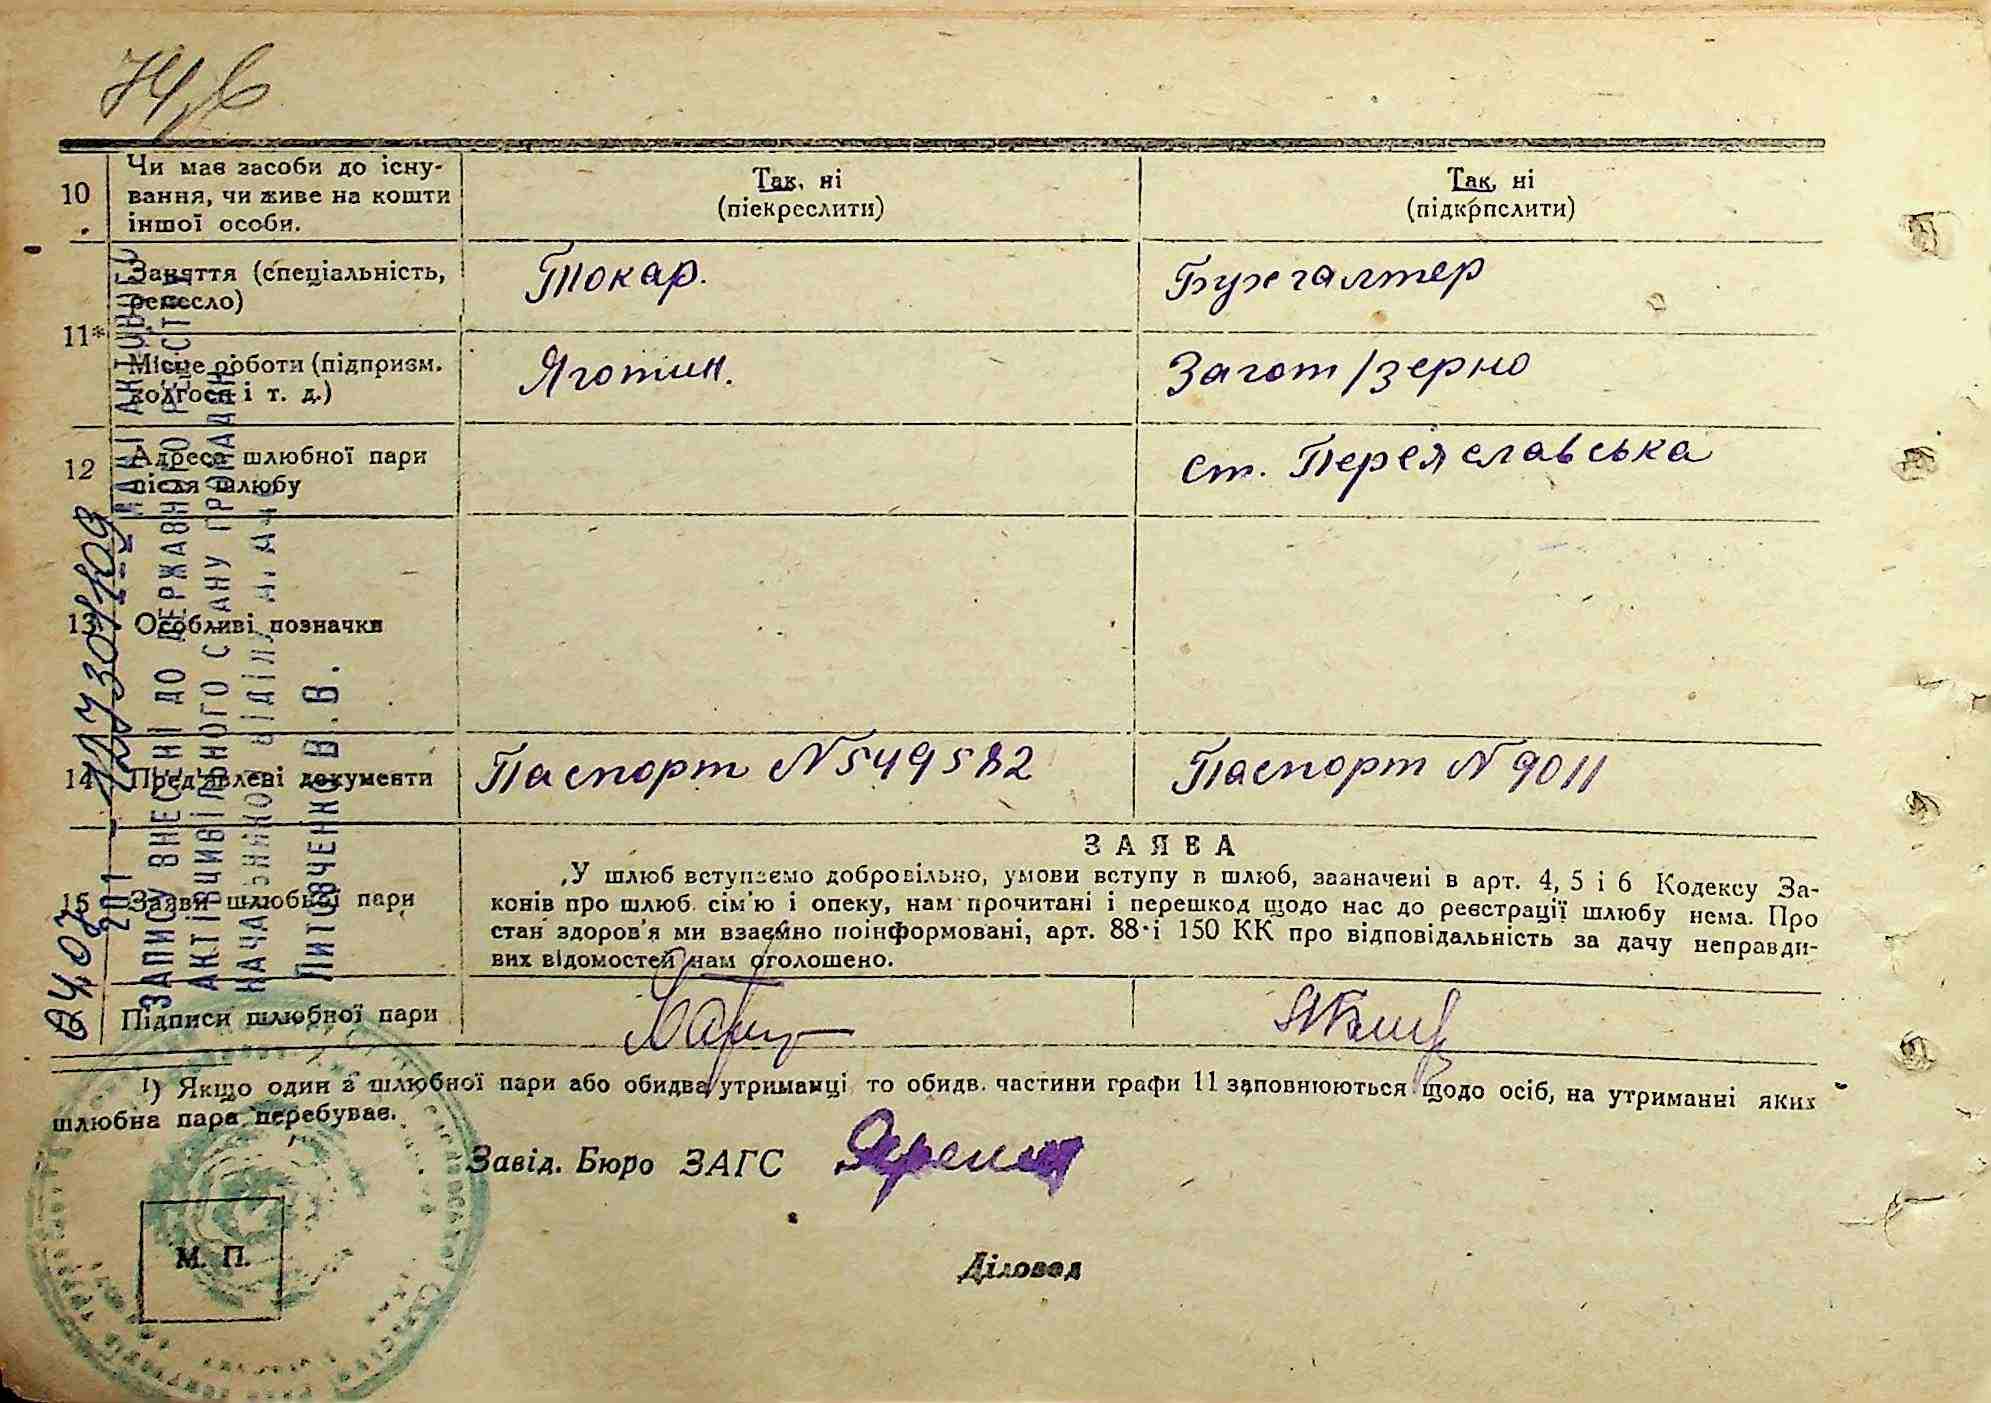 10 Чи має засоби до існу-
вання, чи живе на кошти
іншої особи.
Так, ні
(піекреслити)
Так, ні
(підкрпслити)
11*
Заняття (спеціальність,
ремесло)
Токар.
Бухгалтер
Місце роботи (підпризм.
колгосп і т. д.)
Яготин.
Загот/зерно
12 Адреса шлюбної пари
після шлюбу
ст. Переяславська
13 Особливі позначки
14 Пред'явлені документи
Паспорт N 549582
Паспорт N 9011
15 Заяви шлюбної пари
ЗАЯВА
„У шлюб вступаємо добровільно, умови вступу в шлюб, зазначені в арт. 4, 5 і 6 Кодексу За-
конів про шлюб сім'ю і опеку, нам прочитані і перешкод щодо нас до реєстрації шлюбу нема. Про
стан здоров'я ми взаємно поінформовані, арт. 88 і 150 КК про відповідальність за дачу неправди-
вих відомостей нам оголошено.
Підписи шлюбної пари
1) Якщо один з шлюбної пари або обидва утриманці то обидв. частини графи 11 заповнюються щодо осіб, на утриманні яких
шлюбна пара перебуває.
Завід. Бюро ЗАГС
М. П.
Діловод
ДАНІ АКТОВОГО
ЗАПИСУ ВНЕСЕНІ ДО ДЕРЖАВНОГО РЕЄСТРУ
АКТІВ ЦИВІЛЬНОГО СТАНУ ГРОМАДЯН
НАЧАЛЬНИКОМ ВІДДІЛУ
Литовченко В.В.